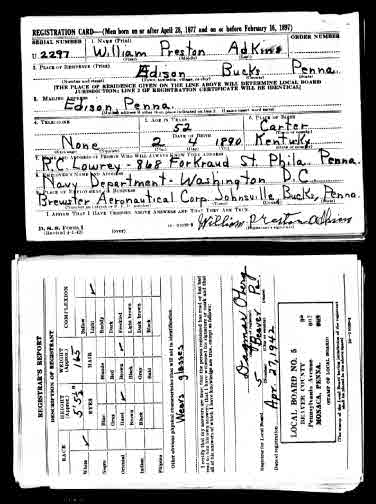 REGISTRATION CARD—(Men born on or after April 28, 1877 and on or before February 16, 1897)
SERIAL NUMBER 1. NAME (Print) ORDER NUMBER
U 2297 William Preston Adkins
(First) (Middle) (Last)
2. PLACE OF RESIDENCE (Print)
Edison Bucks Penna.
(Number and street) (Town, township, village, or city) (County) (State)
[THE PLACE OF RESIDENCE GIVEN ON THE LINE ABOVE WILL DETERMINE LOCAL BOARD
JURISDICTION; LINE 2 OF REGISTRATION CERTIFICATE WILL BE IDENTICAL]
3. MAILING ADDRESS
Edison Penna.
[Mailing address if other than place indicated on line 2. If same insert word same]
4. TELEPHONE 5. AGE IN YEARS 6. PLACE OF BIRTH
52 Carter
DATE OF BIRTH (Town or county)
None 2 4 1890 Kentucky
(Mo.) (Day) (Yr.) (State or country)
7. NAME AND ADDRESS OF PERSON WHO WILL ALWAYS KNOW YOUR ADDRESS
R.C. Lowrey - 868 St. Phila. Penna.
8. EMPLOYER'S NAME AND ADDRESS
Navy Department - Washington D.C.
9. PLACE OF EMPLOYMENT OR BUSINESS
Brewster Aeronautical Corp. Johnsville, Bucks, Penna.
I AFFIRM THAT I HAVE VERIFIED ABOVE ANSWERS AND THAT THEY ARE TRUE.
D. S. S. Form 1
(Revised 4-1-42) (over) William Preston Adkins
(Registrant's signature)
REGISTRAR'S REPORT
DESCRIPTION OF REGISTRANT
RACE HEIGHT (Approx.) WEIGHT (Approx.) COMPLEXION
5' 5½" 165
EYES HAIR
White ✓ Sallow
Light ✓
Negro Blue Blonde Ruddy
Gray Red Dark
Oriental Hazel ✓ Brown ✓ Freckled
Brown Black Light brown
Indian Black Gray Dark brown
Bald Black
Filipino
Other obvious physical characteristics that will aid in identification
Wears glasses
I certify that my answers are true; that the person registered has read or has had
read to him his own answers; that I have witnessed his signature or mark and that
all of his answers of which I have knowledge are true, except as follows:
Registrar for Local Board 5 Beaver Pa
Date of registration Apr. 27, 1942
LOCAL BOARD NO. 5
BEAVER COUNTY
Pennsylvania Avenue
MONACA, PENNA.
(STAMP OF LOCAL BOARD)